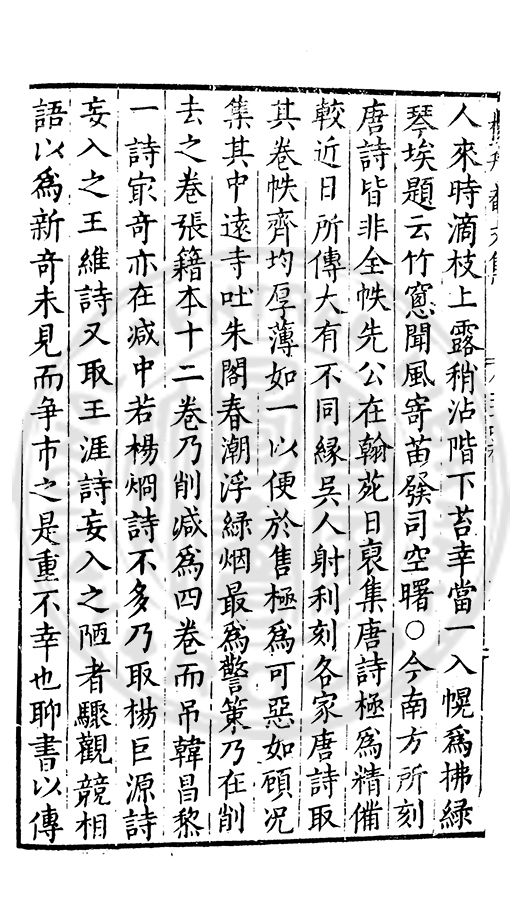 人來時滴枝上露稍沾階下苔幸當一入幌爲拂綠
琴埃題云竹窻聞風寄苗發司空曙○今南方所刻
唐詩皆非全帙先公在翰苑日裒集唐詩極爲精備
較近日所傳大有不同緣吳人射利刻各家唐詩取
其卷帙齊均厚薄如一以便於售極爲可惡如頋况
集其中遠寺吐朱閣春潮浮綠烟最爲警策乃在削
去之卷張籍本十二卷乃削减爲四卷而吊韓昌黎
一詩㝡奇亦在减中若楊烱詩不多乃取楊巨源詩
妄入之王維詩又取王涯詩妄入之陋者驟觀競相
語以爲新奇未見而争市之是重不幸也聊書以傳